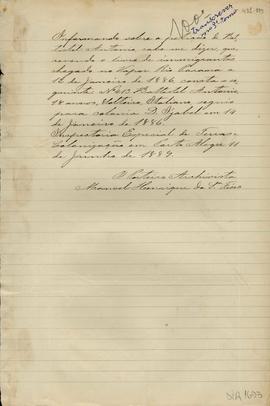 Informando sobre a petição de Bat
tistel Antonio cabe me dizer, que
revendo o livro de immigrantes
chegado no Vapor Rio Parana a
12 de Janeiro de 1886 consta o se
guinte: Nº 613 Antonio
18 annos, solteiro, Italiano, seguio
para colonia D. Izabel em 14
de Janeiro de 1886.
Inspectoria Especial de Terras e
Colonização em Porto Alegre 11
de Junho de 1889.
O Porteiro Archivista
Manoel Henrique da